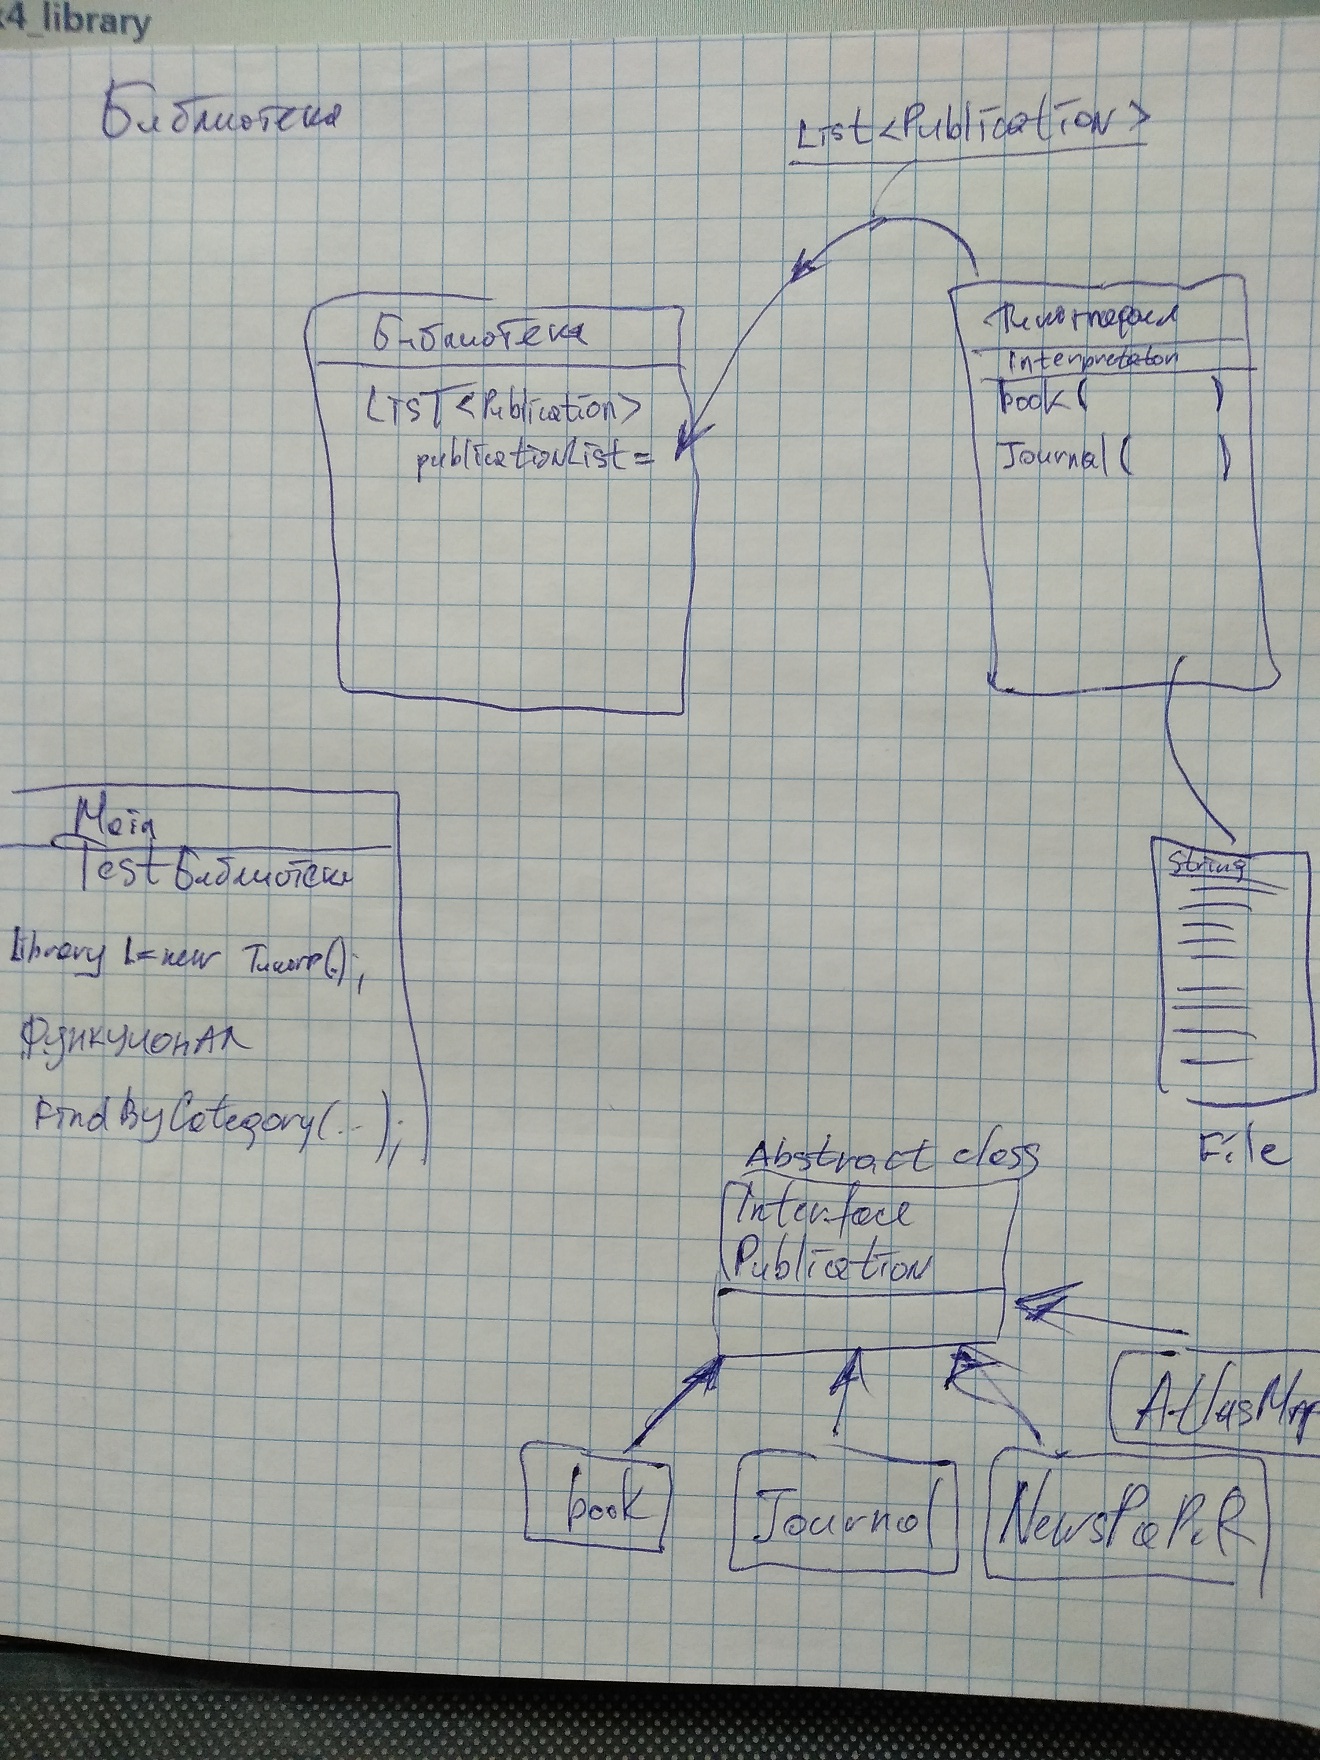 k4_library
Библиотека
List<Publication>
Библиотека
List<Publication>
publicationList=
Interpretator
book( )
Journal( )
Main
Test Библиотеки
Library L=new
Функционал
FindByCategory(...);
String
File
Abstract class
Interface
Publication
AtlasMap
book
Journal
NewsPaPeR